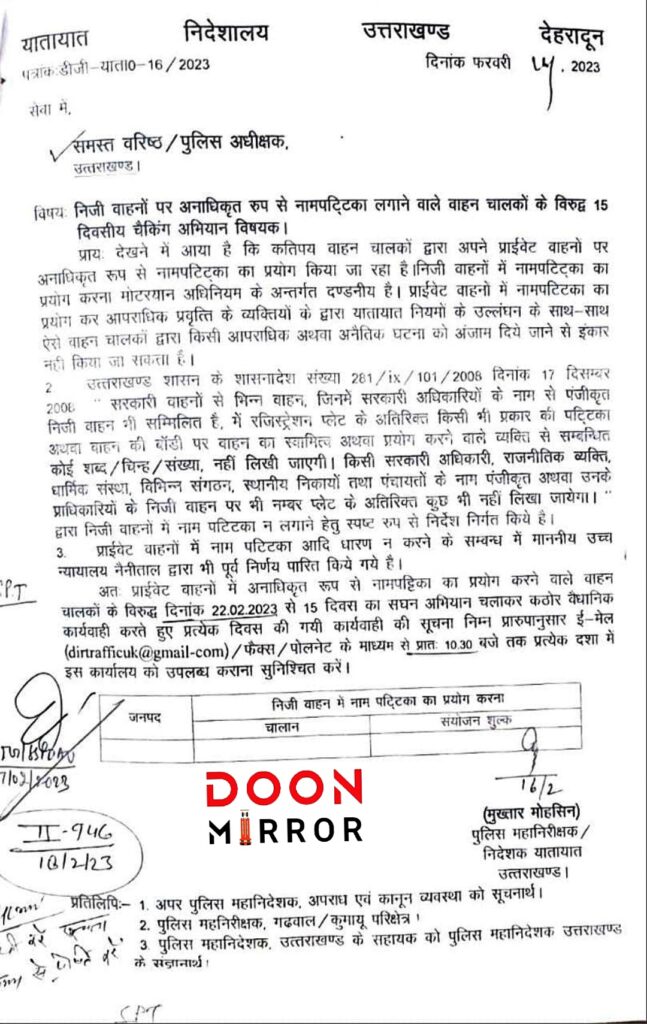 यातायात निदेशालय उत्तराखण्ड देहरादून
पत्रांक:डीजी-याता0-16/2023 दिनांक फरवरी , 2023
सेवा में,
समस्त वरिष्ठ/पुलिस अधीक्षक,
उत्तराखण्ड।
विषय: निजी वाहनों पर अनाधिकृत रुप से नामपटि्टका लगाने वाले वाहन चालकों के विरुद्व 15
दिवसीय चैकिंग अभियान विषयक।
प्रायः देखने में आया है कि कतिपय वाहन चालकों द्वारा अपने प्राईवेट वाहनों पर
अनाधिकृत रूप से नामपटि्टका का प्रयोग किया जा रहा है।निजी वाहनों में नामपटि्टका का
प्रयोग करना मोटरयान अधिनियम के अन्तर्गत दण्डनीय है। प्राईवेट वाहनो में नामपटि्टका का
प्रयोग कर आपराधिक प्रवृत्ति के व्यक्तियों के द्वारा यातायात नियमों के उल्लंघन के साथ-साथ
ऐसे वाहन चालकों द्वारा किसी आपराधिक अथवा अनैतिक घटना को अंजाम दिये जाने से इंकार
नही किया जा सकता है।
2 उत्तराखण्ड शासन के शासनादेश संख्या 281/ix/101/2008 दिनांक 17 दिसम्बर
2008 " सरकारी वाहनों से भिन्न वाहन, जिनमें सरकारी अधिकारियों के नाम से पंजीकृत
निजी वाहन भी सम्मिलित है, में रजिस्ट्रेशन प्लेट के अतिरिक्त किसी भी प्रकार की पटि्टका
अथवा वाहन की बॉडी पर वाहन का स्वामित्व अथवा प्रयोग करने वाले व्यक्ति से सम्बन्धित
कोई शब्द/चिन्ह/संख्या, नहीं लिखी जाएगी। किसी सरकारी अधिकारी, राजनीतिक व्यक्ति,
धार्मिक संस्था, विभिन्न संगठन, स्थानीय निकायों तथा पंचायतों के नाम पंजीकृत अथवा उनके
प्राधिकारियों के निजी वाहन पर भी नम्बर प्लेट के अतिरिक्त कुछ भी नहीं लिखा जायेगा। "
द्वारा निजी वाहनों में नाम पटिटका न लगाने हेतु स्पष्ट रुप से निर्देश निर्गत किये है।
3. प्राईवेट वाहनों में नाम पटिटका आदि धारण न करने के सम्बन्ध में माननीय उच्च
न्यायालय नैनीताल द्वारा भी पूर्व निर्णय पारित किये गये है।
अतः प्राईवेट वाहनों में अनाधिकृत रूप से नामपट्टिका का प्रयोग करने वाले वाहन
चालकों के विरुद्ध दिनांक 22.02.2023 से 15 दिवस का सघन अभियान चलाकर कठोर वैधानिक
कार्यवाही करते हुए प्रत्येक दिवस की गयी कार्यवाही की सूचना निम्न प्रारुपानुसार ई-मेल
(dirtrafficuk@gmail-com)/फैक्स/पोलनेट के माध्यम से प्रातः 10.30 बजे तक प्रत्येक दशा में
इस कार्यालय को उपलब्ध कराना सुनिश्चित करें।
जनपद
निजी वाहन में नाम पटि्टका का प्रयोग करना
चालान संयोजन शुल्क
16/2
DOON
MIRROR
(मुख्तार मोहसिन)
पुलिस महानिरीक्षक/
निदेशक यातायात
उत्तराखण्ड।
II-946
18/2/23
प्रतिलिपिः- 1. अपर पुलिस महानिदेशक, अपराध एवं कानून व्यवस्था को सूचनार्थ।
2. पुलिस महनिरीक्षक, गढवाल/कुमायू परिक्षेत्र।
3. पुलिस महानिदेशक, उत्तराखण्ड के सहायक को पुलिस महानिदेशक उत्तराखण्ड
के संज्ञानार्थ।